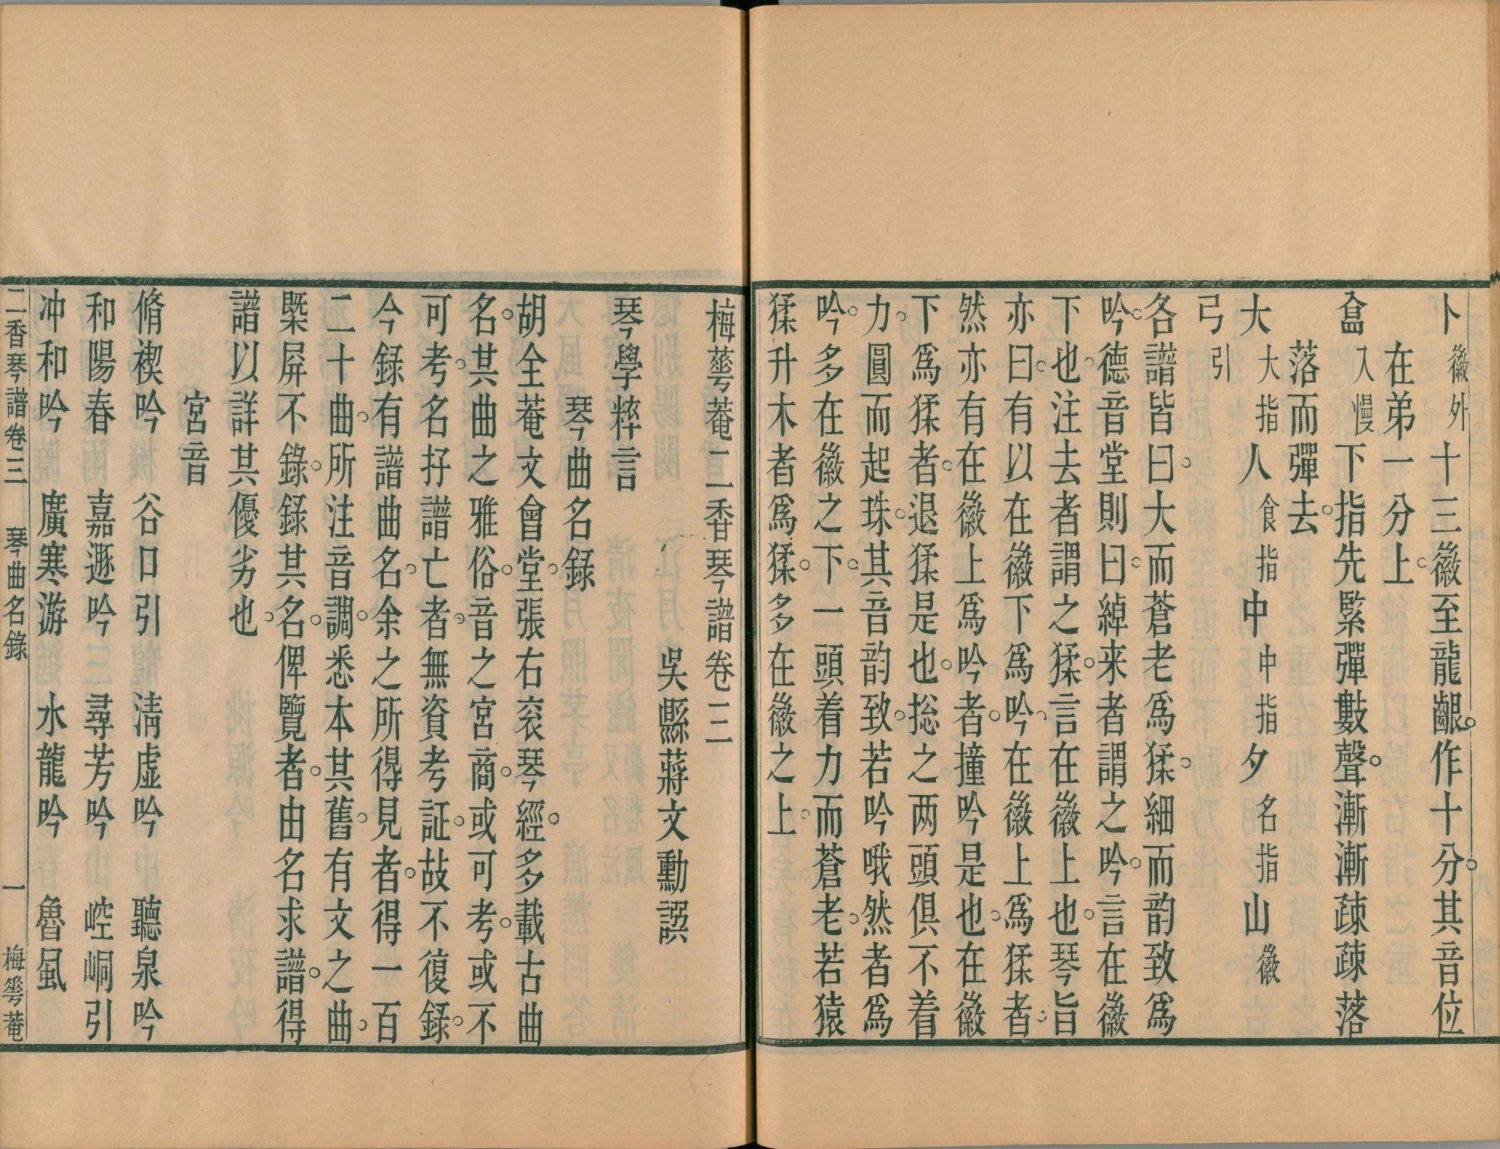 卜徽外十三徽至龍齦作十分其音位
在弟一分上
入慢下指先緊彈數聲漸漸疎疎落
落而彈去
大大指人食指中中指夕名指山徽
弓引
各譜皆曰大而蒼老爲猱細而韵致爲
吟德音堂則曰綽来者謂之吟言在徽
下也注去者謂之猱言在徽上也琴旨
亦曰有以在徽下爲吟在徽上爲猱者
然亦有在徽上爲吟者撞吟是也在徽
下爲猱者退猱是也捴之两頭俱不着
力圓而起珠其音韵致若吟哦然者爲
吟多在徽之下一頭着力而蒼老若猿
猱升木者爲猱多在徽之上
梅蕚菴二香琴譜卷三
吳縣蔣文勳譔
琴學粹言
琴曲名録
胡全菴文會堂張右衮琴經多載古曲
名其曲之雅俗音之宮商或可考或不
可考名抙譜亡者無資考証故不復録
今録有譜曲名余之所得見者得一百
二十曲所注音調悉本其舊有文之曲
槩屏不錄錄其名俾覽者由名求譜得
譜以詳其優劣也
宮音
脩禊吟　谷口引　清虚吟　聽泉吟
和陽春　嘉遯吟　尋芳吟　崆峒引
冲和吟　廣寒游　水龍吟　魯風
二香琴譜卷三　琴曲名錄　一　梅蕚菴